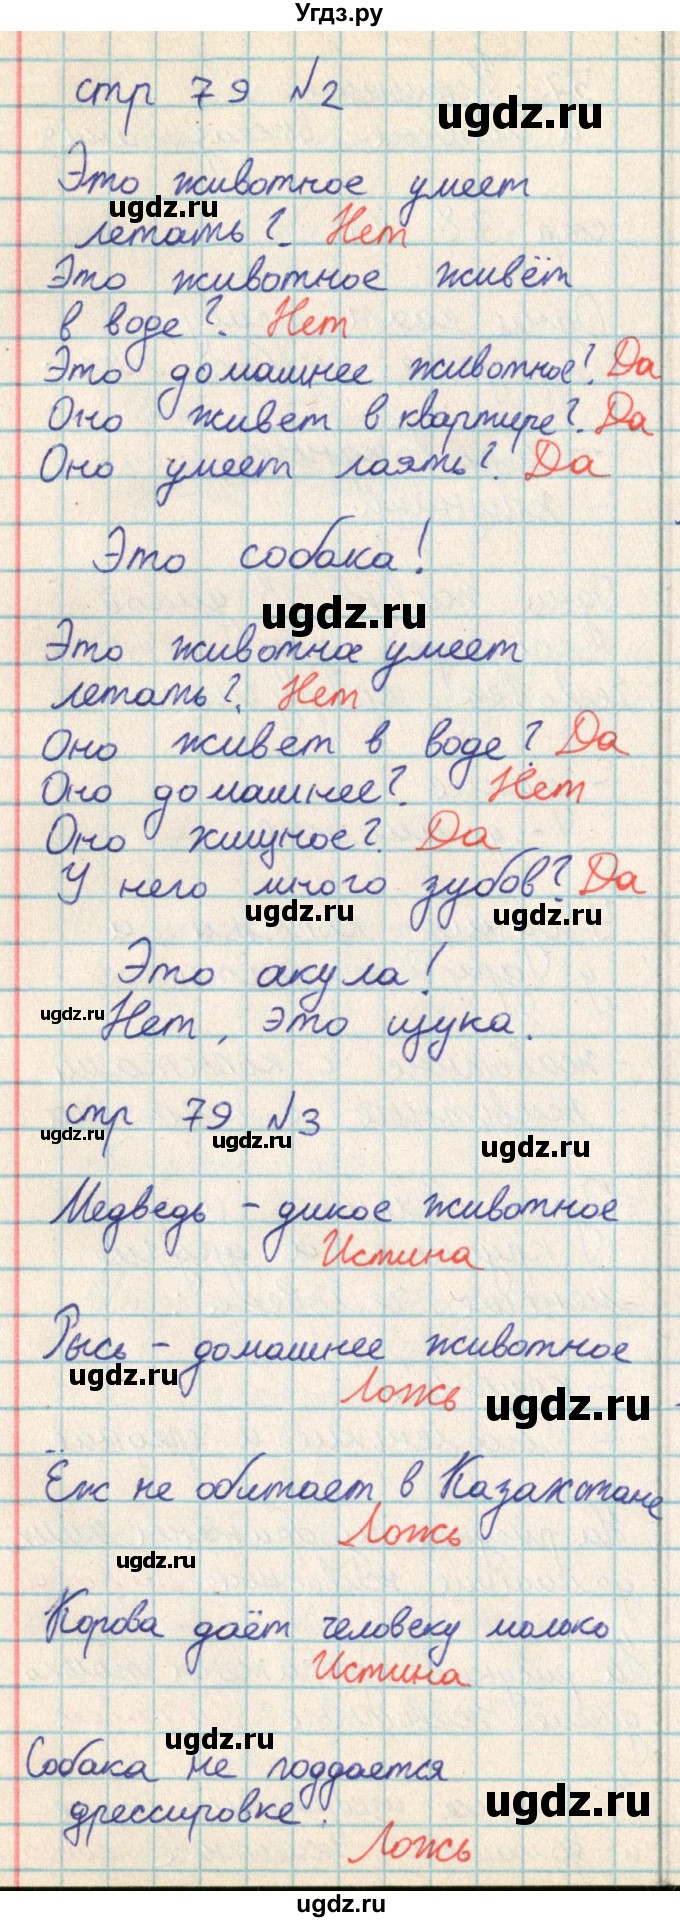 Угдз.ру
стр 79 №2
ugdz.ru
Это животное умеет
ugdz.ru
летать? Нет
Это животное живёт
в воде? Нет
Это домашнее животное? Да
Оно живет в квартире? Да
Оно умеет лаять? Да
Это собака!
ugdz.ru
Это животна умеет
летать? Нет
Оно живет в воде? Да
Оно домашнее? Нет
Оно хищное? Да
У него много зубов? Да
ugdz.ru
ugdz.ru
Это акула!
ugdz.ru
Нет, это щука.
стр 79 №3
ugdz.ru
ugdz.ru
ugdz.ru
Медведь - дикое животное
Истина
Рысь - домашнее животное
ugdz.ru
Ложь
ugdz.ru
Ёж не обитает в Казахстане
Ложь
ugdz.ru
Корова даёт человеку малако
Истина
ugdz.ru
Собака не поддается
дрессировке.
ugdz.ru
Ложь
ugdz.ru